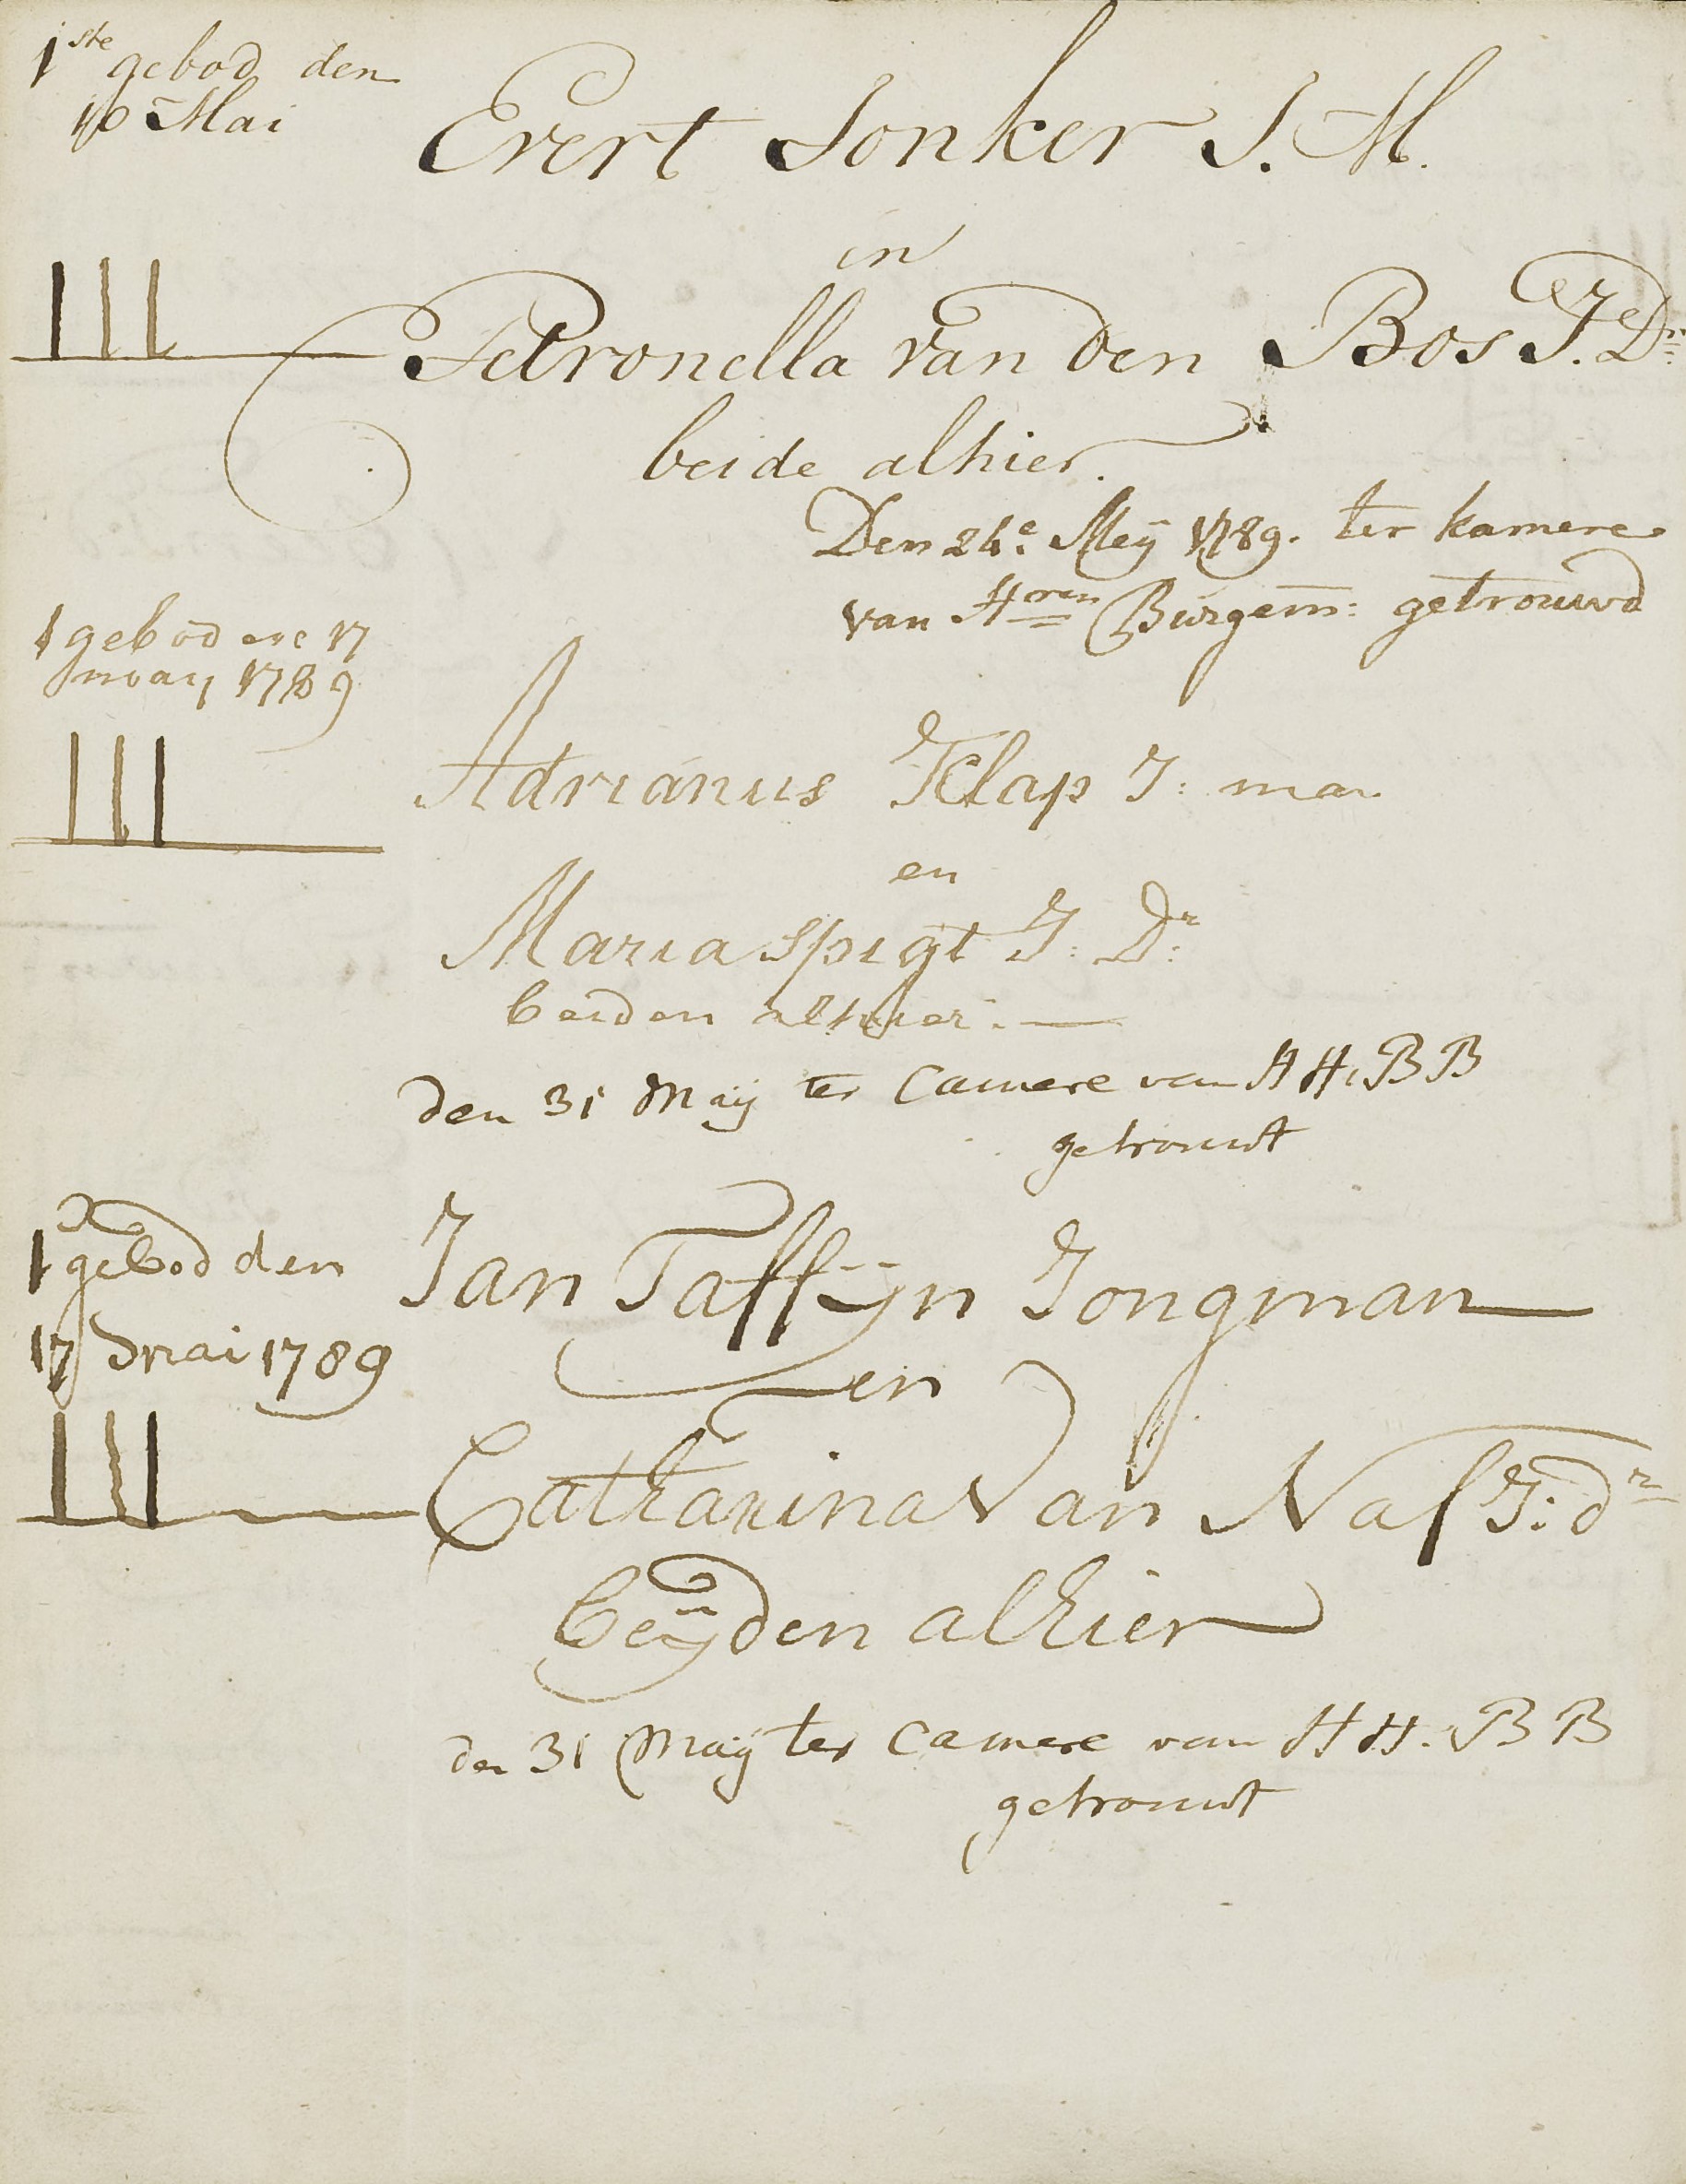 1ste gebod den
10 Mai
Evert Jonker J. M.
en
Petronella van den Bos J. Dr
beide alhier.
Den 24e. Meÿ 1789. ter kamere
van Hren Burgem: getrouwd
1 gebod de 17
may 1789
Adrianus Klap J: man
en
Maria Spigt J: Dr:
beiden alhier.
den 31 Maÿ ter Camere van HH. BB
getrouwt
1 gebod den
17 Mai 1789
Jan Taffÿn Jongman
en
Catharina Van Nas J: dr
beÿden alhier
den 31 Maÿ ter Camere van HH. BB
getrouwt